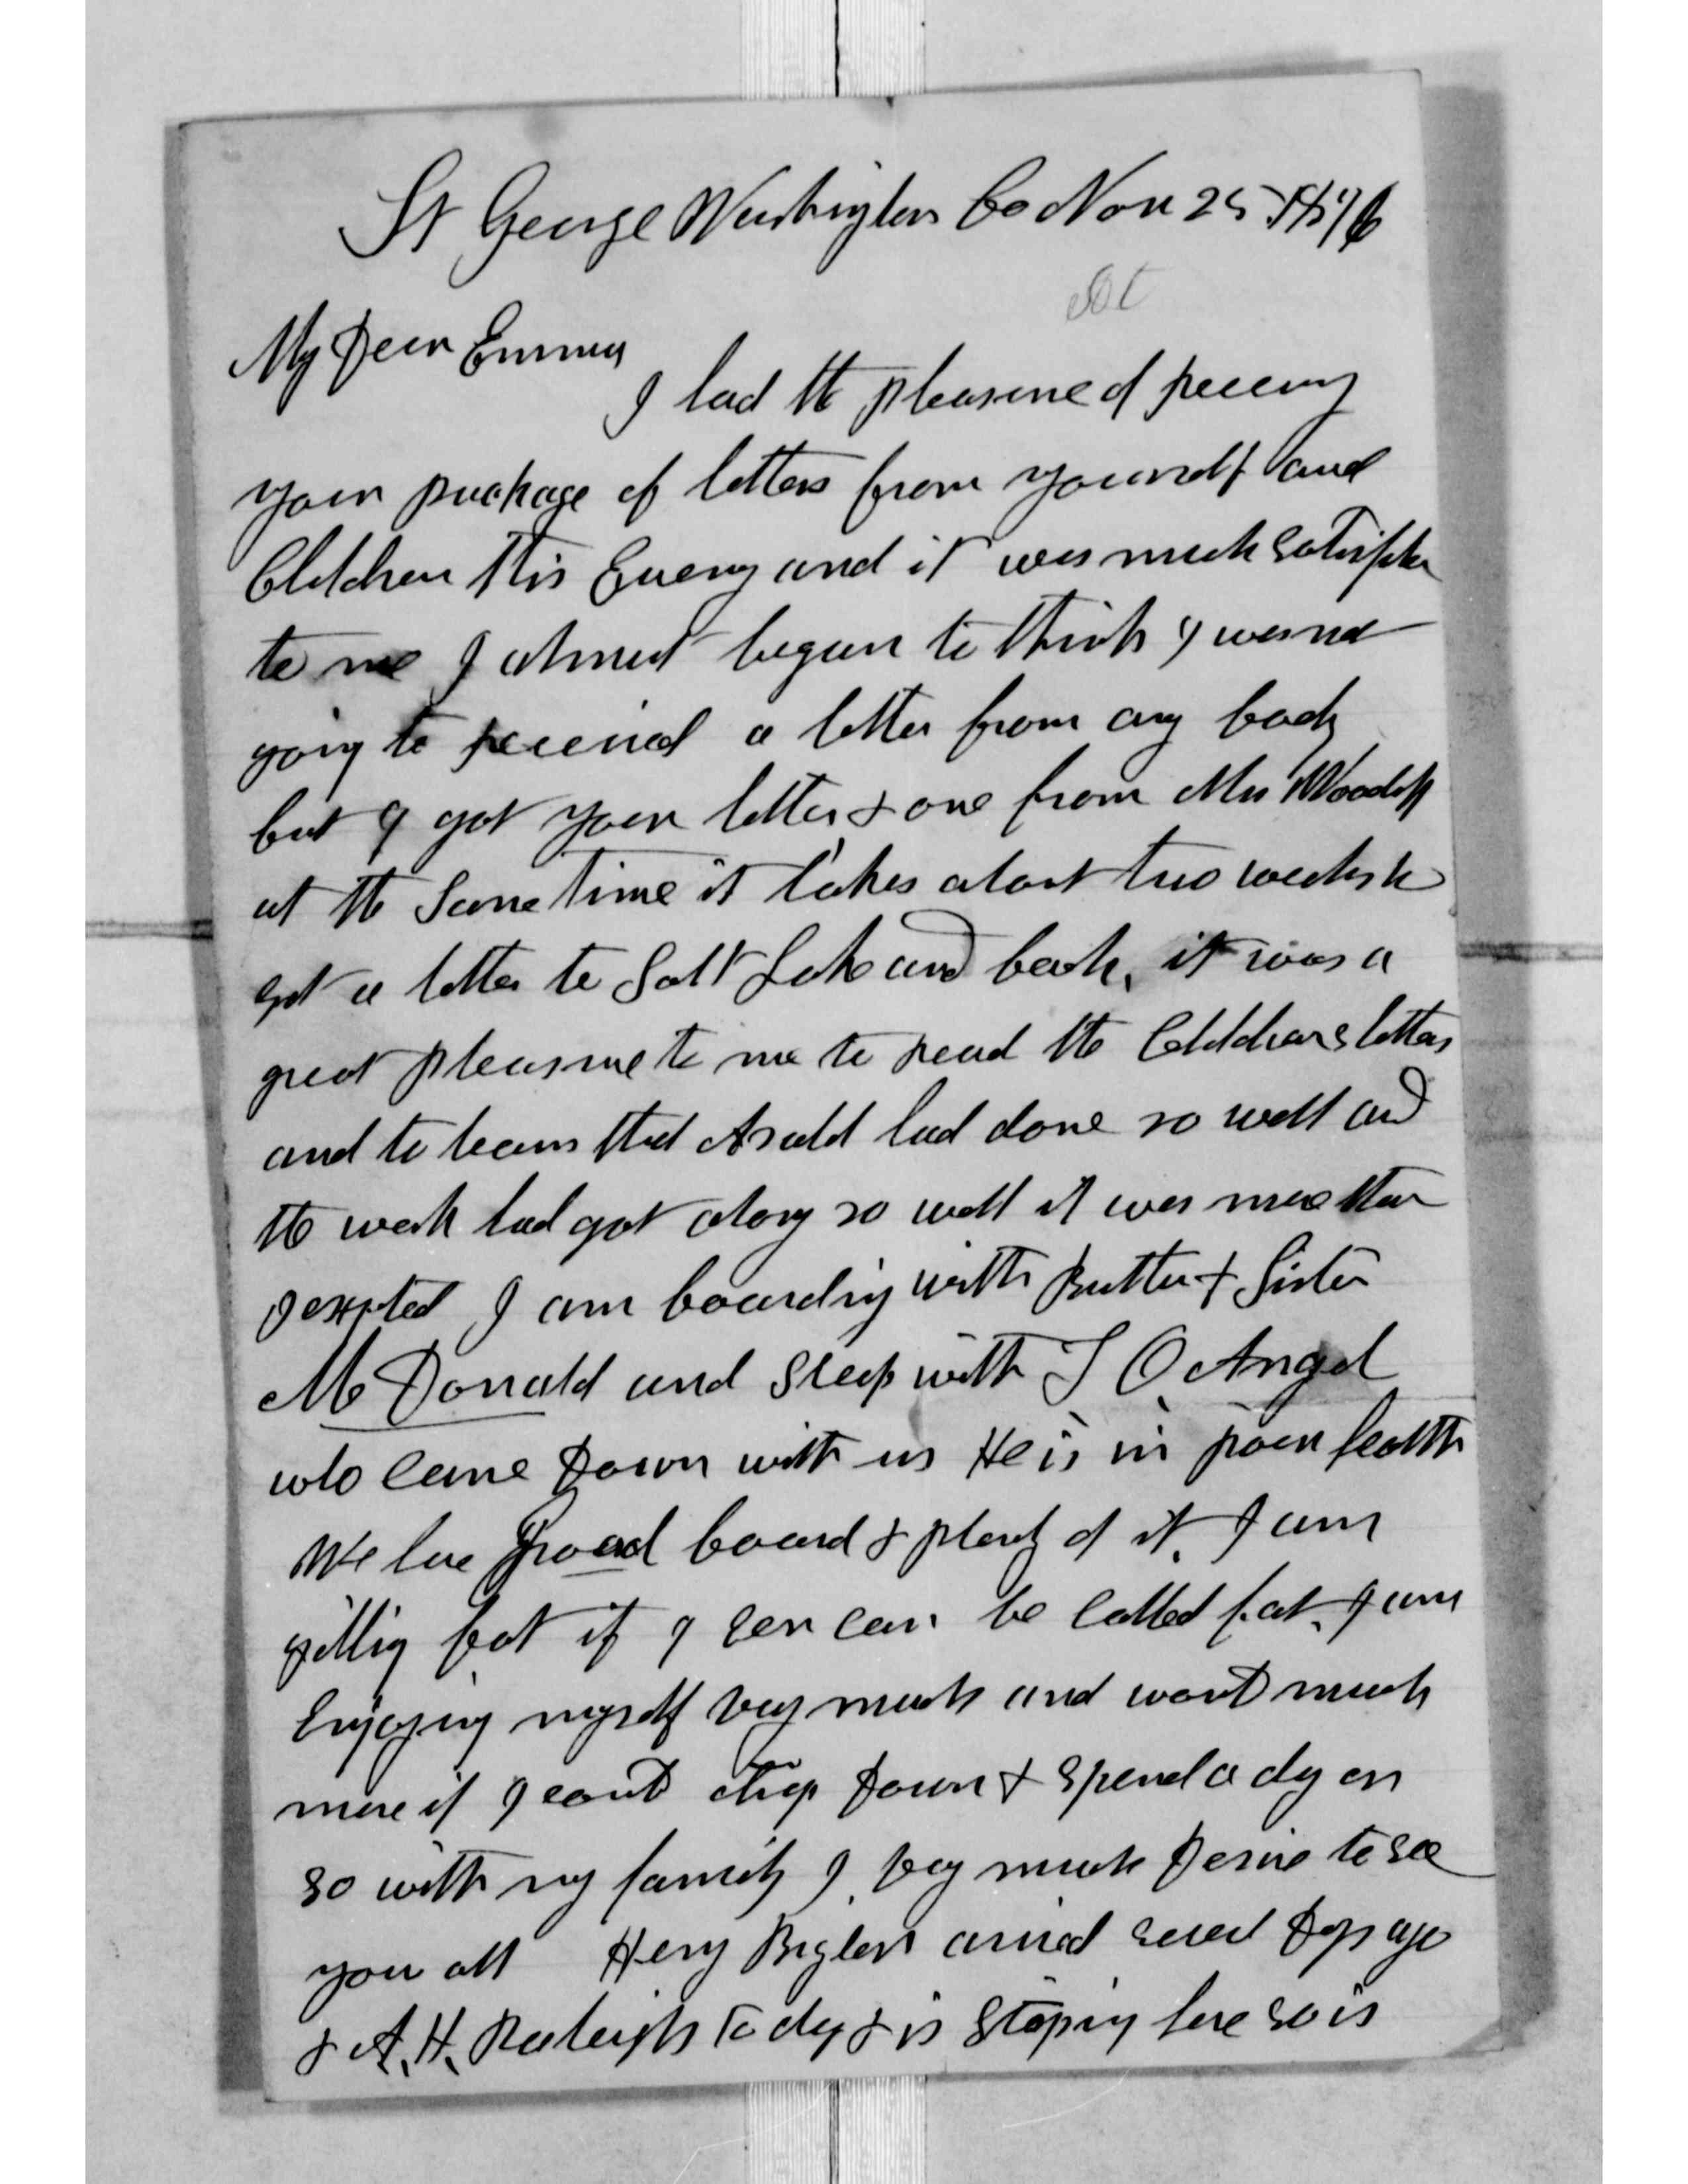 St George Washington Co Nov 25 1876
Sat
My Dear Emma
I had the pleasure of receiving
your package of letters from yourself and
Children this Evening and it was much satisfaction
to me I almost began to think I was not
going to received a letter from any body
but I got your letter & one from Mrs Woodruff
at the same time it takes about two weeks to
get a letter to Salt Lake and back. it was a
great pleasure to me to read the Childrens letters
and to learn that Asahel had done so well and
the work had got along so well it was more than
I expected I am boarding with Brother & Sister
McDonald and Sleep with T O Angel
who came Down with us He is in poor health
We have Good board & plenty of it. I am
gitting fat if I ever can be called fat. I am
Enjoying myself very much and want much
more if I could drop Down & spend a day or
so with my family I very much Desire to see
you all Henry Bigler arived several Days ago
& A. H. Raleigh to day & is stoping here so is